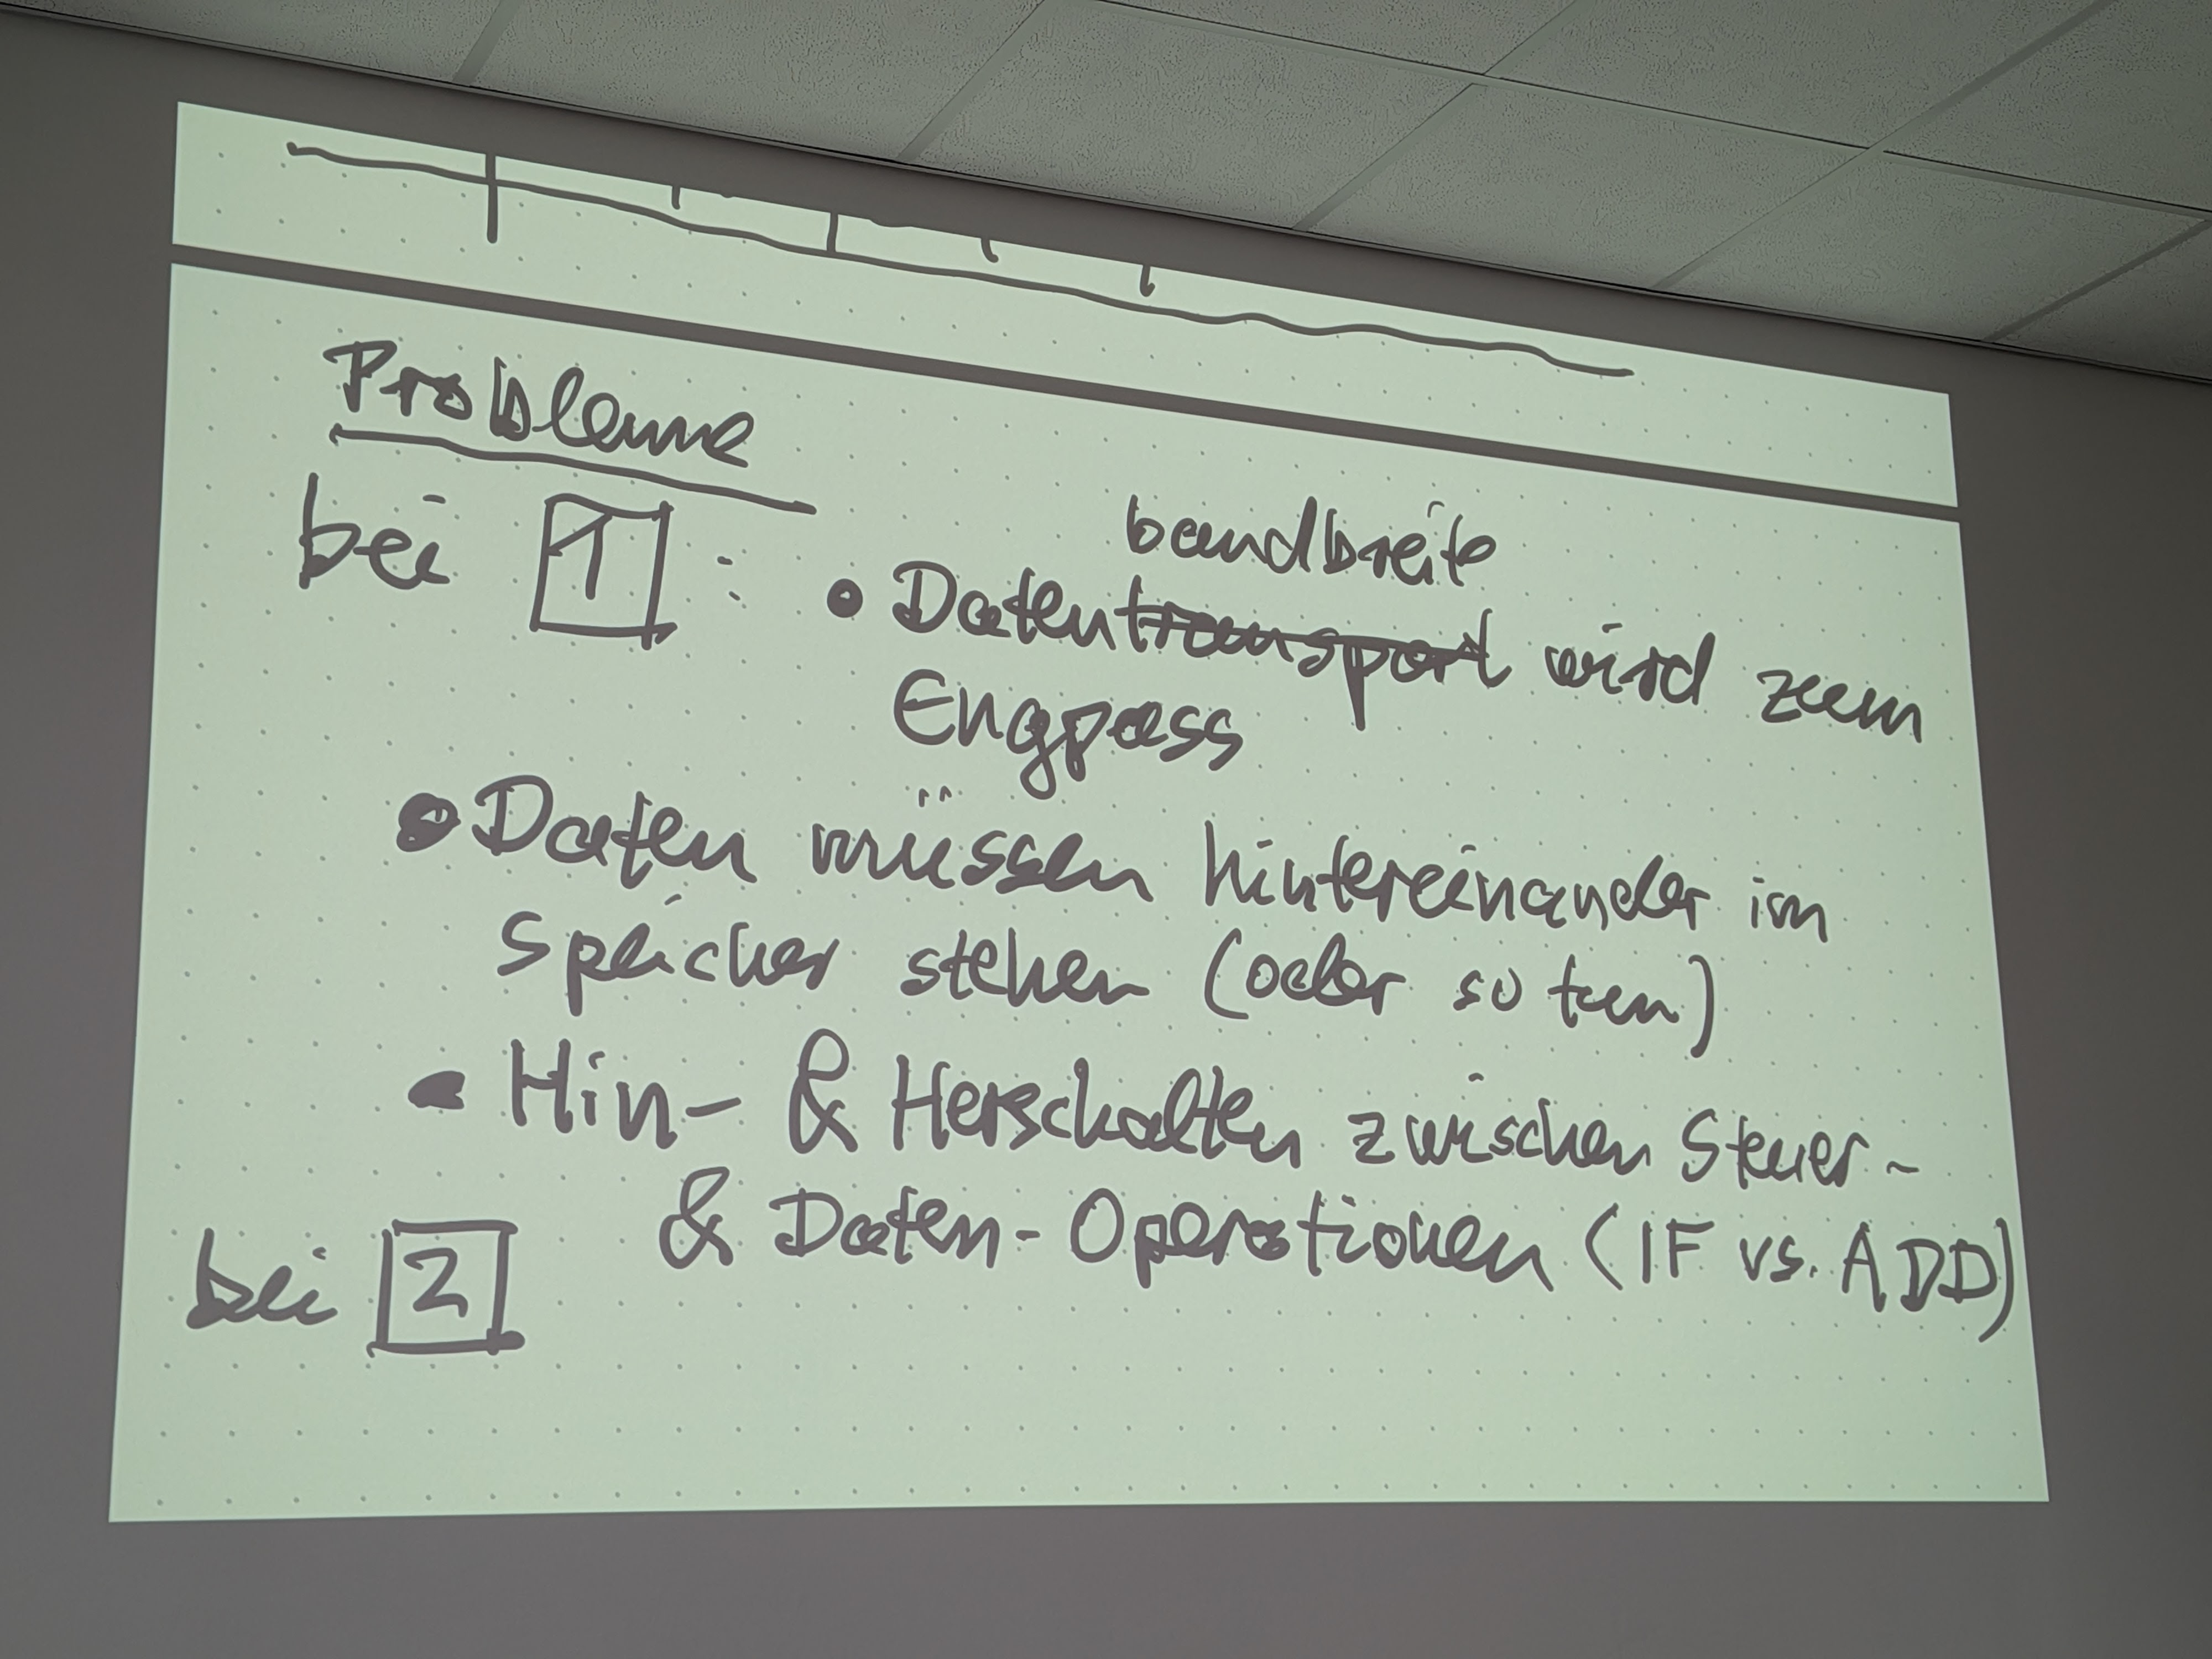 Probleme
bei 1 :
bandbreite
• Datentransport wird zum
Engpass
• Daten müssen hintereinander im
Speicher stehen (oder so tun)
• Hin- & Herschalten zwischen Steuer-
& Daten-Operationen (IF vs. ADD)
bei 2